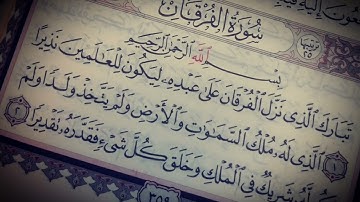 إِلَيْهِ
سُورَةُ الفُرْقَانِ
ترتيبها ٢٥
بِسْمِ ٱللَّهِ ٱلرَّحْمَٰنِ ٱلرَّحِيمِ
تَبَارَكَ ٱلَّذِى نَزَّلَ ٱلْفُرْقَانَ عَلَىٰ عَبْدِهِۦ لِيَكُونَ لِلْعَٰلَمِينَ نَذِيرًا
١ ٱلَّذِى لَهُۥ مُلْكُ ٱلسَّمَٰوَٰتِ وَٱلْأَرْضِ وَلَمْ يَتَّخِذْ وَلَدًا وَلَمْ
لَّهُۥ شَرِيكٌ فِى ٱلْمُلْكِ وَخَلَقَ كُلَّ شَىْءٍ فَقَدَّرَهُۥ تَقْدِيرًا ٢
٣٥٩